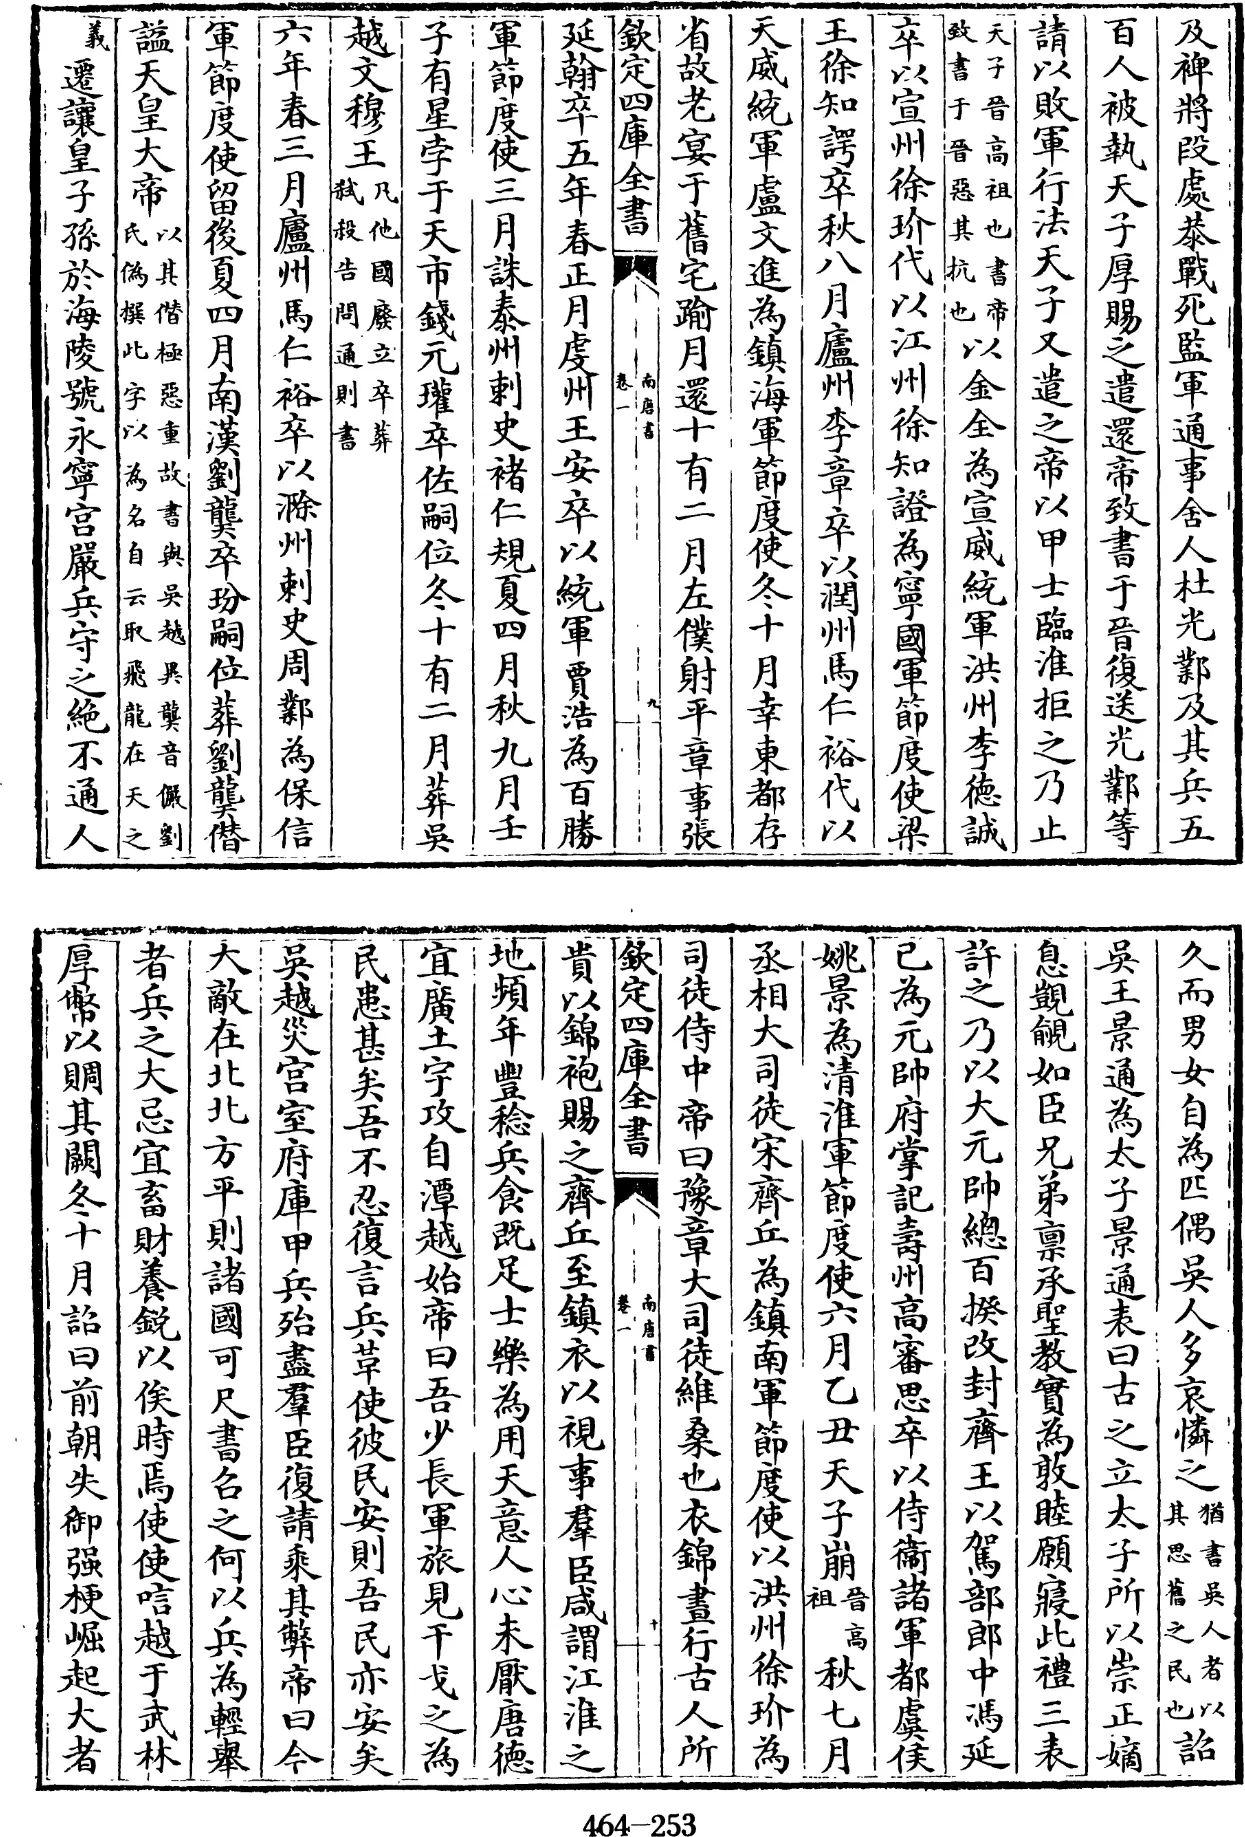 及裨將段處恭戰死監軍通事舍人杜光鄴及其兵五
百人被執天子厚賜之遣還帝致書于晉復送光鄴等
請以敗軍行法天子又遣之帝以甲士臨淮拒之乃止
天子晉高祖也書帝致書于晉惡其抗也以金全為宣威統軍洪州李德誠
卒以宣州徐玠代以江州徐知證為寧國軍節度使梁
王徐知諤卒秋八月廬州李章卒以潤州馬仁裕代以
天威統軍盧文進為鎮海軍節度使冬十月幸東都存
省故老宴于舊宅踰月還十有二月左僕射平章事張
欽定四庫全書
南唐書
卷一
九
延翰卒五年春正月虔州王安卒以統軍賈浩為百勝
軍節度使三月誅泰州刺史褚仁規夏四月秋九月壬
子有星孛于天市錢元瓘卒佐嗣位冬十有二月葬吳
越文穆王凡他國廢立卒葬弑殺告問通則書
六年春三月廬州馬仁裕卒以滁州刺史周鄴為保信
軍節度使留後夏四月南漢劉龑卒玢嗣位葬劉龑僭
諡天皇大帝以其僭極惡重故書與吳越異龑音儼劉氏偽撰此字以為名自云取飛龍在天之
義遷讓皇子孫於海陵號永寧宮嚴兵守之絕不通人
久而男女自為匹偶吳人多哀憐之猶書吳人者以其思舊之民也詔
吳王景通為太子景通表曰古之立太子所以崇正嫡
息覬覦如臣兄弟稟承聖教實為敦睦願寢此禮三表
許之乃以大元帥總百揆改封齊王以駕部郎中馮延
己為元帥府掌記壽州高審思卒以侍衞諸軍都虞侯
姚景為清淮軍節度使六月乙丑天子崩晉高祖秋七月
丞相大司徒宋齊丘為鎮南軍節度使以洪州徐玠為
司徒侍中帝曰豫章大司徒維桑也衣錦晝行古人所
欽定四庫全書
南唐書
卷一
十
貴以錦袍賜之齊丘至鎮衣以視事羣臣咸謂江淮之
地頻年豐稔兵食既足士樂為用天意人心未厭唐德
宜廣土宇攻自潭越始帝曰吾少長軍旅見干戈之為
民患甚矣吾不忍復言兵革使彼民安則吾民亦安矣
吳越災宮室府庫甲兵殆盡羣臣復請乘其弊帝曰今
大敵在北北方平則諸國可尺書召之何以兵為輕舉
者兵之大忌宜畜財養銳以俟時焉使使唁越于武林
厚幣以賙其闕冬十月詔曰前朝失御强梗崛起大者
464-253